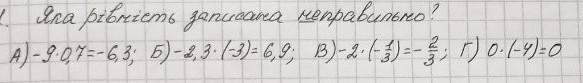 1. Яка рівність записана неправильно?
А) -9·0,7=-6,3; Б) -2,3·(-3)=6,9; В) -2·(-1/3)=-2/3; Г) 0·(-4)=0